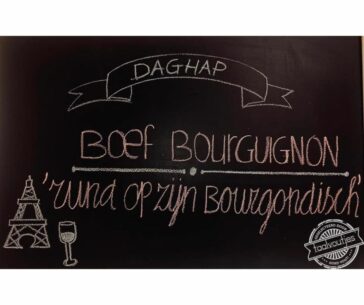 DAGHAP
BOEF BOURGUIGNON
'rund op zijn Bourgondisch'
taalvoutjes